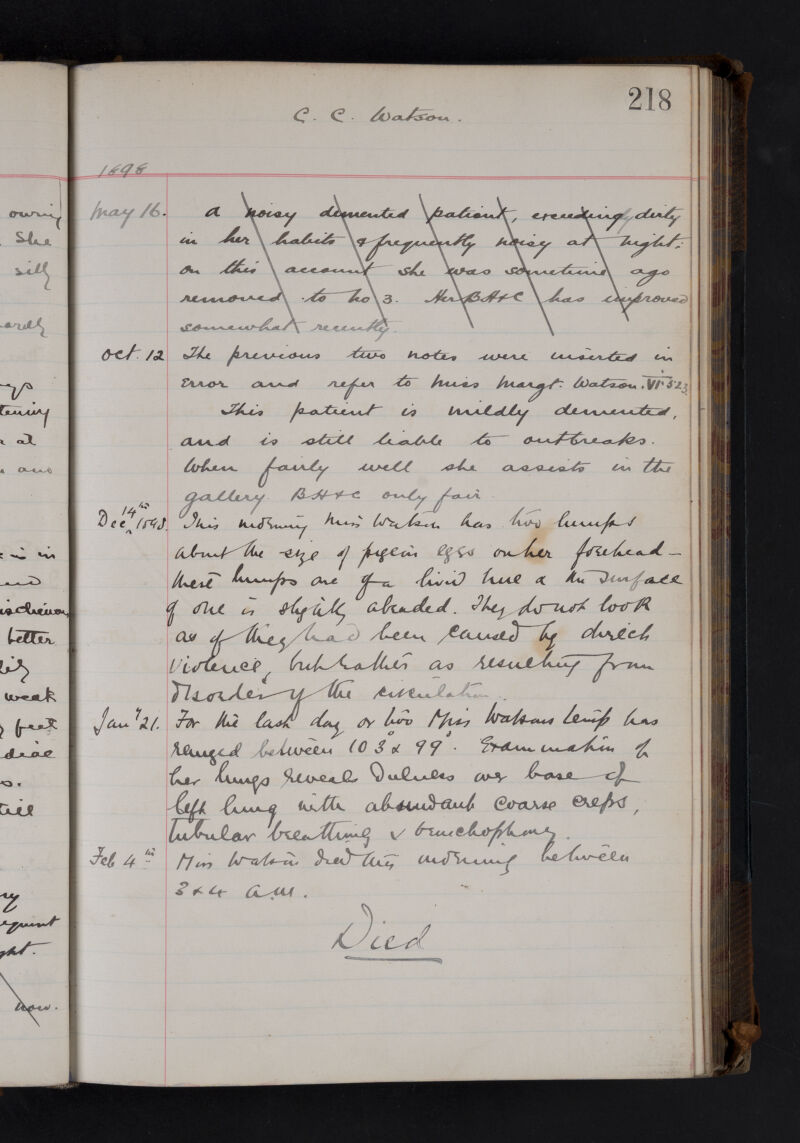 218
C. C. Watson.
1898
owing
She
silly
ardly
tening
at
and
is in
mischievous
better
weak
feet
till
now.
May 16. A noisy demented patient, exceedingly dirty
in her habits & frequently noisy at night:
on this account she was sometime ago
removed to No 3. Her BH&C has improved
somewhat recently.
Oct. 12 The previous two notes were inserted in
Error and refer to Miss Margt. Watson. VI. 523.
This patient is mildly demented,
and is still liable to outbreaks.
When fairly well she assists in the
gallery. BH&C only fair.
Dec 14th 1898. This morning Miss Watson has two lumps
about the size of pigeon eggs on her forehead –
these lumps are of a livid hue & the surface
of one is slightly abraded. They do not look
as if they had been caused by direct
violence, but rather as resulting from
disorder of the circulation.
Jany 21. For the last day or two Miss Watsons temp has
ranged between 103° & 99°. Examination of
her lungs reveals Dulness over base of
left lung with abundant coarse creps,
tubular breathing & bronchophony.
Feb 4th Miss Watson died this morning between
3 & 4 a.m.
Died